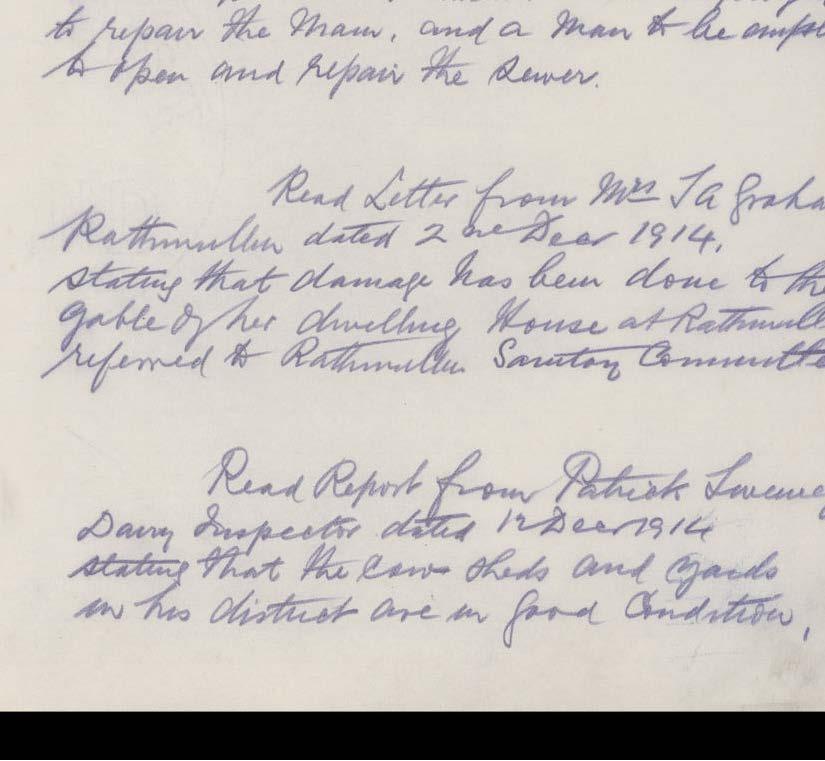 to repair the Main, and a Man to be
to open and repair the Sewer.
Read Letter from Mrs J A Graha
Rathmullen dated 2nd Decr 1914,
stating that damage has been done to the
Gable of her dwelling House at Rathmull
referred to Rathmullen Sanitary Committe
Read Report from Patrick Sweeney
Dairy Inspector dated 1st Decr 1914
stating that the Cow Sheds and Yards
in his district are in good Condition,